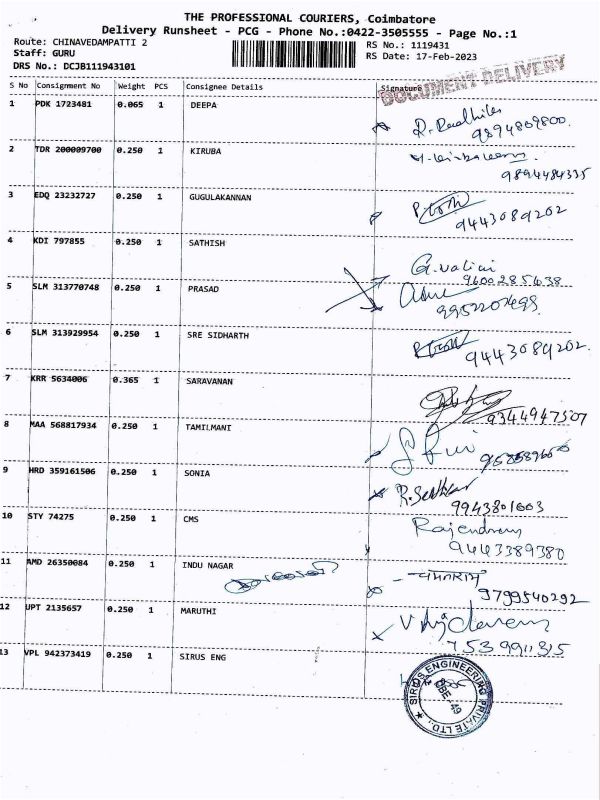 THE PROFESSIONAL COURIERS, Coimbatore
Delivery Runsheet - PCG - Phone No.:0422-3505555 - Page No.:1
Route: CHINAVEDAMPATTI 2
RS No.: 1119431
Staff: GURU
RS Date: 17-Feb-2023
DRS No.: DCJB111943101
DOCUMENT DELIVERY
S No Consignment No Weight PCS Consignee Details Signature
1 PDK 1723481 0.065 1 DEEPA
R. Radhika
9894809800.
2 TDR 200009700 0.250 1 KIRUBA
9894484335
3 EDQ 23232727 0.250 1 GUGULAKANNAN
9443089202
4 KDI 797855 0.250 1 SATHISH
G. Valini
9600285438
5 SLM 313770748 0.250 1 PRASAD
6 SLM 313929954 0.250 1 SRE SIDHARTH
9443089202.
7 KRR 5634006 0.365 1 SARAVANAN
9344947507
8 MAA 568817934 0.250 1 TAMILMANI
9 HRD 359161506 0.250 1 SONIA
R. Senthur
9943801603
10 STY 74275 0.250 1 CMS
Rajendran
9443389380
11 AMD 26350084 0.250 1 INDU NAGAR
9799540292
12 UPT 2135657 0.250 1 MARUTHI
7539911315
13 VPL 942373419 0.250 1 SIRUS ENG
SIRUS ENGINEERING PRIVATE LTD.
CBE - 49